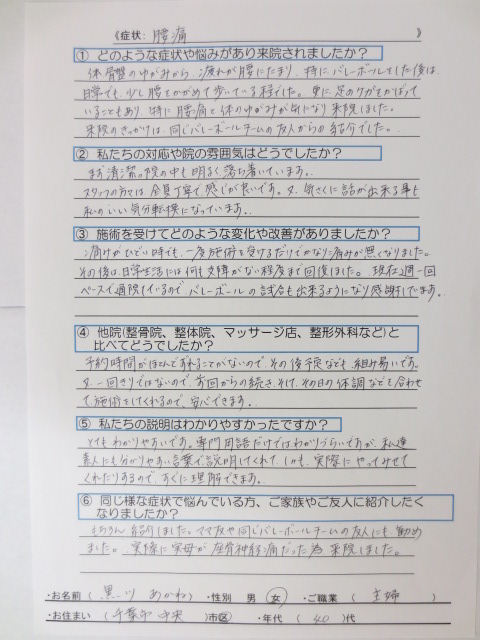 《症状: 腰痛 》
① どのような症状や悩みがあり来院されましたか?
体骨盤のゆがみから、疲れが腰にたまり、特に、バレーボールをした後は、
日常でも、少し腰をかがめて歩いている程でした。更に、足の分がもかばって
いることもあり、特に腰痛と体のゆがみが気になり来院しました。
来院のきっかけは、同じバレーボールチームの友人からの紹介でした。
② 私たちの対応や院の雰囲気はどうでしたか?
まず清潔。院の中も明るく落ち着いています。
スタッフの方々は、全員丁寧で、感じが良いです。又、気さくに話が出来る事も
私のいい気分転換になっています。
③ 施術を受けてどのような変化や改善がありましたか?
痛みがひどい時でも、一度施術を受けるだけでかなり痛みが無くなりました。
その後は、日常生活には何も支障がない程度まで回復しました。現在2週に一回
ペースで通院しているので、バレーボールの試合も出来るようになり感謝しています。
④ 他院(整骨院、整体院、マッサージ店、整形外科など)と
比べてどうでしたか?
予約時間がほとんどずれることがないので、その後予定なども、組み易いです。
又、一回きりではないので、前回からの続き、そして、その日の体調なども合わせ
て、施術をしてくれるので、安心できます。
⑤ 私たちの説明はわかりやすかったですか?
とてもわかりやすいです。専門用語だけではわかりづらいですが、私達
素人にも分かりやすい言葉で説明してくれて、しかも、実際にやってみせて
くれたりするので、すぐに理解できます。
⑥ 同じ様な症状で悩んでいる方、ご家族やご友人に紹介したく
なりましたか?
もちろん紹介しました。ママ友や同じバレーボールチームの友人にも勧め
ました。実際に実母が座骨神経痛だった為来院しました。
・お名前( 黒 あかね ) ・性別 男 女 ・ご職業( 主婦 )
・お住まい( 千葉市中央 )市区 ・年代( 40 )代